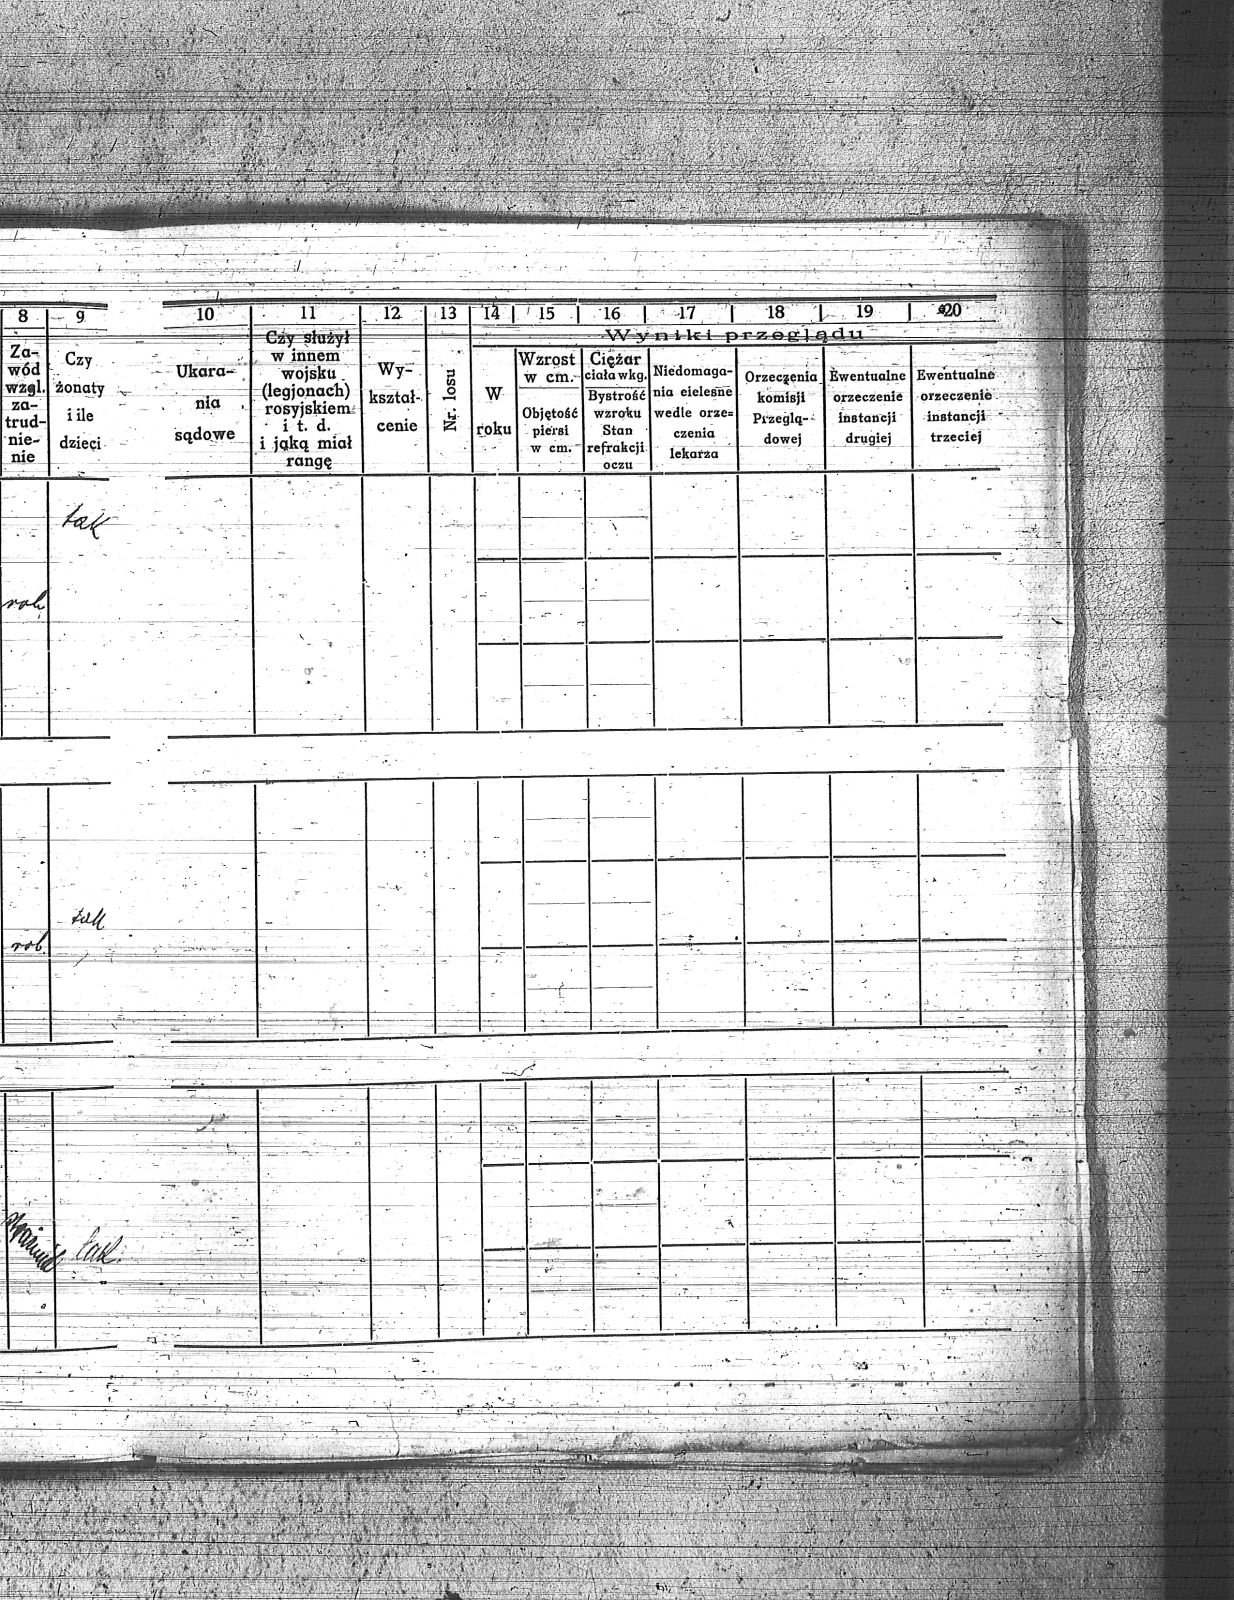 8 9 10 11 12 13 14 15 16 17 18 19 20
Wyniki przeglądu
Za-
wód
wzgl.
za-
trud-
nie-
nie
Czy
żonaty
i ile
dzieci
Ukara-
nia
sądowe
Czy służył
w innem
wojsku
(legjonach)
rosyjskiem
i t. d.
i jaką miał
rangę
Wy-
kształ-
cenie
Nr. losu
W
roku
Wzrost
w cm.
Objętość
piersi
w cm.
Ciężar
ciała w kg.
Bystrość
wzroku
Stan
refrakcji
oczu
Niedomaga-
nia cielesne
wedle orze=
czenia
lekarza
Orzeczenia
komisji
Przeglą-
dowej
Ewentualne
orzeczenie
instancji
drugiej
Ewentualne
orzeczenie
instancji
trzeciej
tak
rob.
tak
rob.
tak.